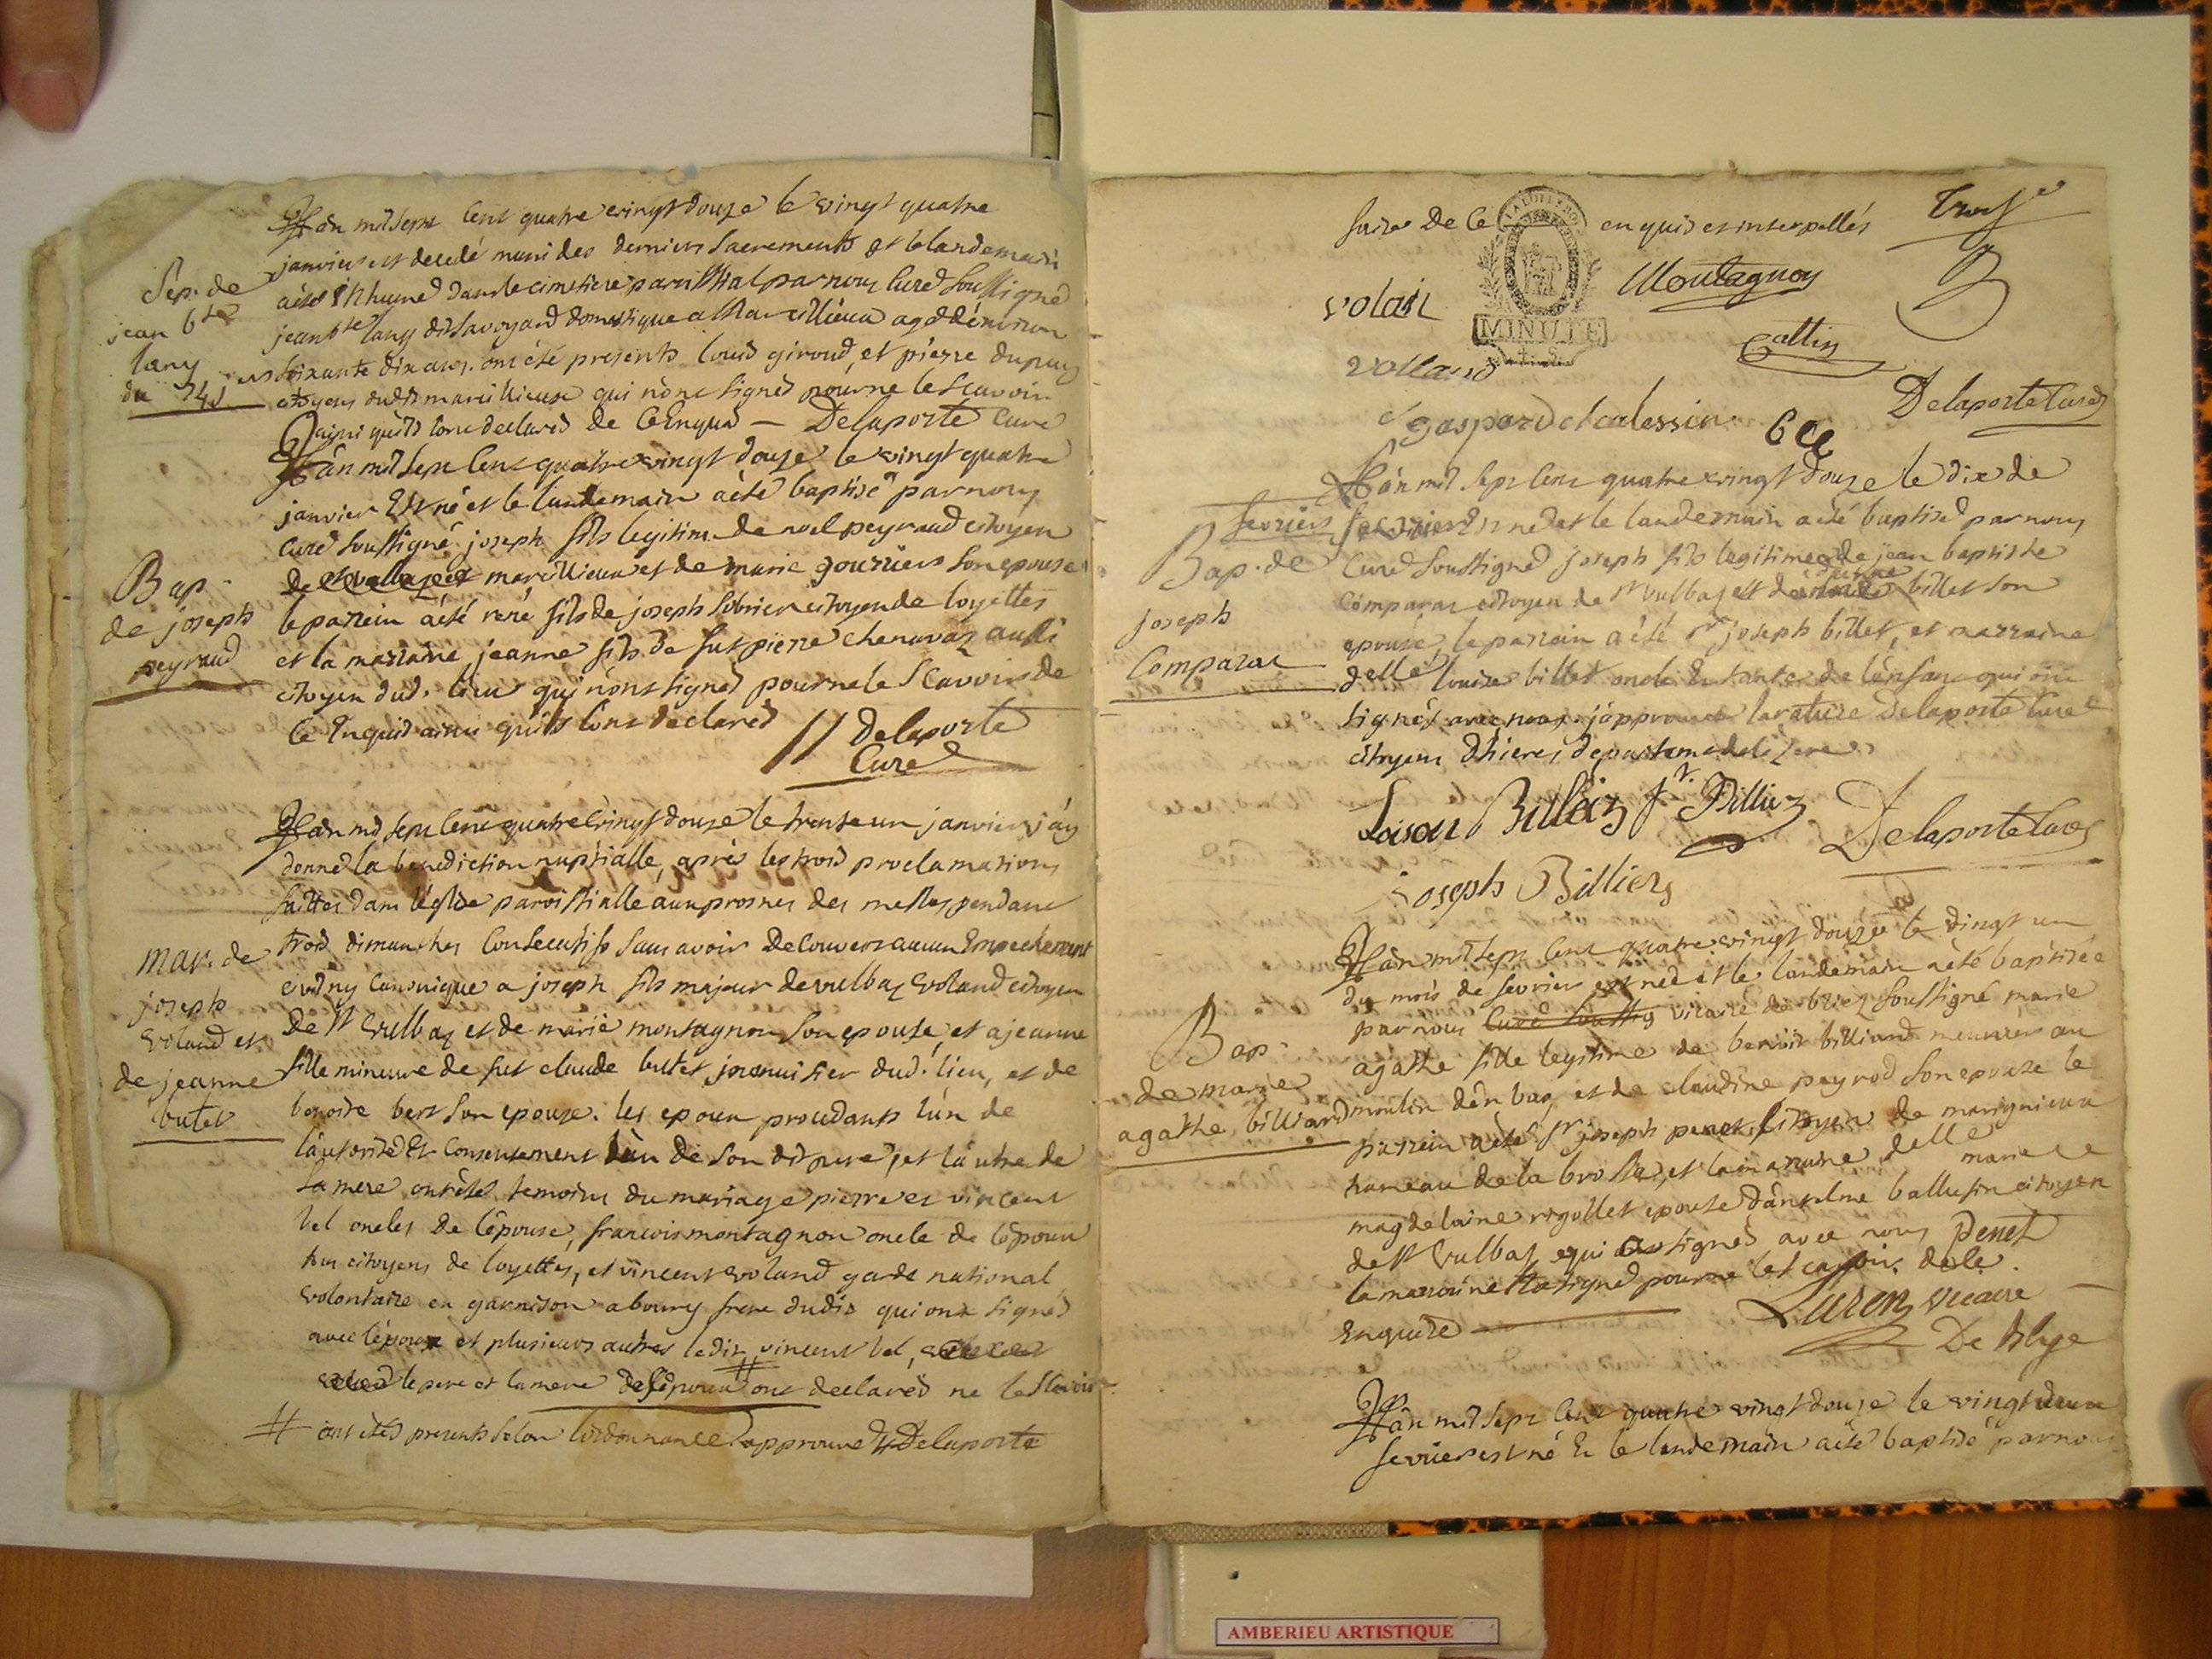 L'an mil sept cent quatre vingt douze le vingt quatre
janvier est decedé muni des derniers sacrements et le landemain
a été Inhumé dans le cimetiere paroissial par nous curé soussigné
Sep. de
jean bte
lany
du 24 J
jean bte lany dit savoyard domestique a Marcillieux agé d'environ
soixante dix ans. ont été presents louis giroud, et pierre dupuy
citoyens dudit marcillieux qui n'ont signé pour ne le scavoir
ainsi qu'ils l'ont declaré de ce Enquis — Delaporte curé
L'an mil sept cent quatre vingt douze le vingt quatre
janvier Est né et le landemain a été baptisé par nous
curé soussigné joseph fils legitime de noel peyraud citoyen
de marcillieux et de marie gourrier son epouse
Bap.
de joseph
peyraud
le parrein a été rené fils de joseph sobrier citoyen de loyettes
et la marraine jeanne fils de fut pierre chenavaz aussi
citoyen dud. lieu qui n'ont signé pour ne le scavoir de
ce Enquis ainsi qu'ils l'ont declaré // Delaporte
Curé
L'an mil sept cent quatre vingt douze le trente un janvier j'ay
donné la benediction nuptialle, après les trois proclamations
faittes dans léglise paroissialle aux prosnes des messes pendant
trois dimanches consecutifs sans avoir decouvert aucun Empechement
civil ny canonique a joseph fils majeur de vulbaz voland citoyen
de st vulbaz et de marie montagnon son epouse, et a jeanne
mar. de
joseph
voland et
de jeanne
butet
fille mineure de fut claude butet dud. lieu, et de
benoite bert son epouse. les epoux procedants l'un de
l'autorité et consentement de son dit pere, et l'autre de
sa mere, ont été temoins du mariage pierre et vincent
bel oncles de l'épouse, francois montagnon oncle de l'époux
tous citoyens de loyettes, et vincent voland garde national
volontaire en garnison a bourg frere dudit qui ont signés
avec l'époux et plusieurs autres ledit vincent bel,
le pere et la mere de l'époux # ont declaré ne le scavoir
# ont étés presents selon l'ordonnance approuvé Delaporte
faire de ce enquis et interpellés
trois
volair
MINUTE
Montagnon
voland
gattin
gaspard chalessin
Delaporte curé
L'an mil sept cent quatre vingt douze le dix de
fevrier
fevrier est né et le landemain a été baptisé par nous
Bap. de
joseph
Comparat
curé soussigné joseph fils legitime de jean baptiste
comparat citoyen de st vulbaz et de billet son
epouse, le parrain a été sr joseph billet, et marraine
delle louise billet oncle Et tante de l'enfant qui ont
signés avec nous. j'approuve la rature Delaporte curé
citoyens d'hieres departement de l'izere
Joseph Billiez
Delaporte curé
L'an mil sept cent quatre vingt douze le vingt un
du mois de fevrier est née et le landemain a été baptisée
par nous curé soussig vicaire de soussigné marie
Bap.
de marie
agathe billiard
agathe fille legitime de benoit billiard meunier au
moulin d'en bas, et de claudine peyrod son epouse le
parrein a été sr joseph penet, citoyen de marignieux
hameau de la brosse, et la maraine delle marie
magdelaine rigollet epouse d'anselme ballufin citoyen
de st vulbaz, qui signé avec nous Penet
la maraine n'a signé pour ne le scavoir de ce
Enquise — vicaire
De blye
L'an mil sept cent quatre vingt douze le vingt deux
fevrier est né Et le landemain a été baptisé par nous
AMBERIEU ARTISTIQUE